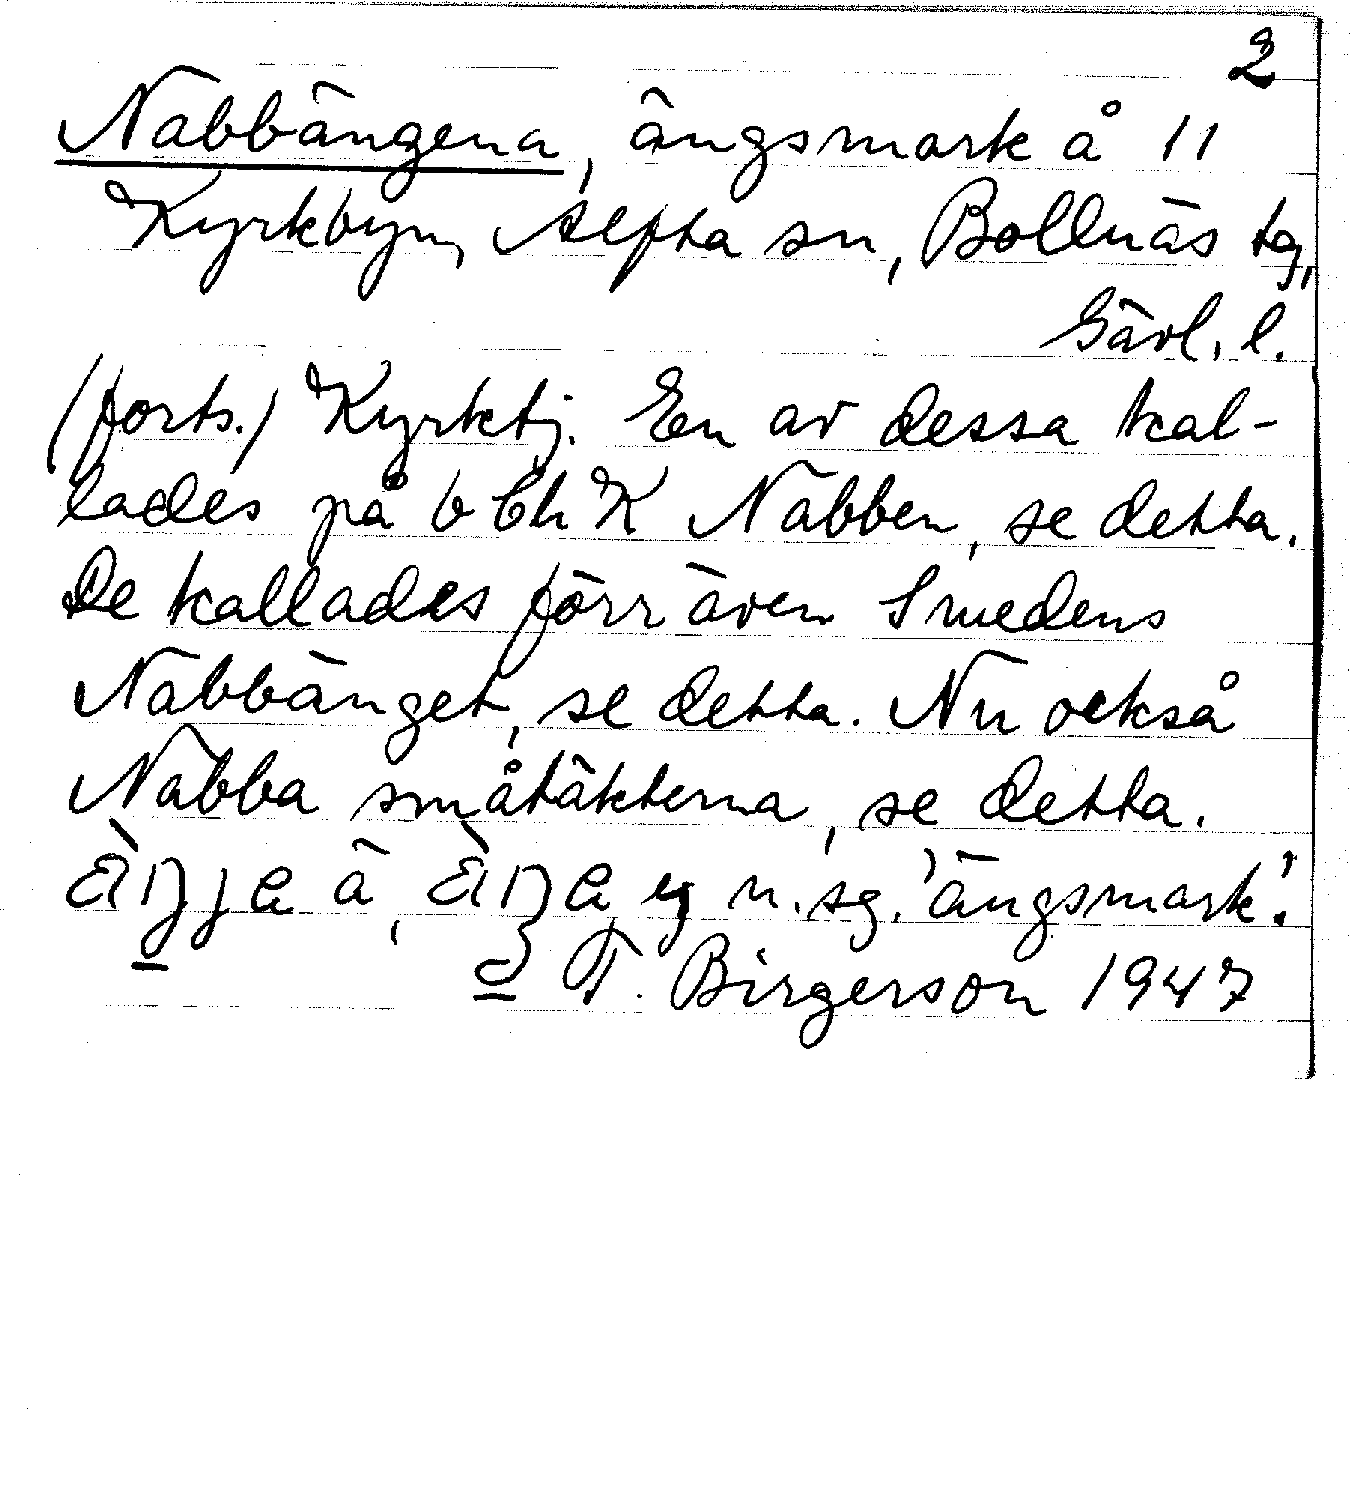 2
Nabbängena, ängsmark å 11
Kyrkbyn, Alfta sn, Bollnäs tg,
Gävl. l.
(forts.) Kyrktj. En av dessa kal-
lades på b bl K Nabben, se detta.
De kallades förr även Smedens
Nabbänget, se detta. Nu också
Nabba småtäkterna, se detta.
ä, n. sg. 'ängsmark'.
T. Birgerson 1947